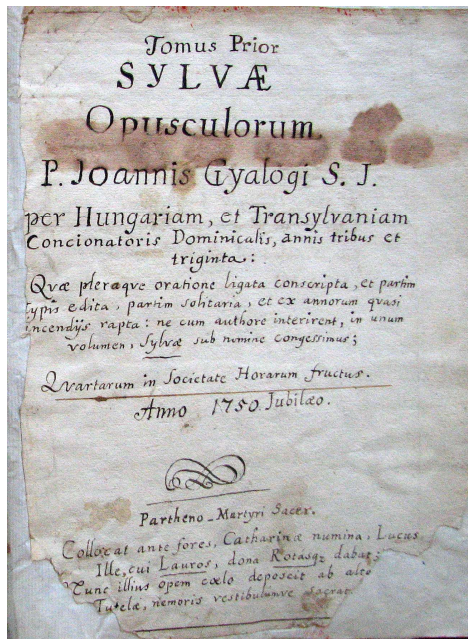 Tomus Prior
SYLVÆ
Opusculorum
P. Joannis Gyalogi S. J.
per Hungariam, et Transylvaniam
Concionatoris Dominicalis, annis tribus et
triginta:
Quæ pleræqve oratione ligata conscripta, et partim
typis edita, partim solitaria, et ex annorum quasi
incendijs rapta: ne cum authore interirent, in unum
volumen, Sylvæ sub nomine congessimus;
Qvartarum in Societate Horarum fructus.
Anno 1750. Jubilæo.
Partheno-Martyri Sacer.
Collocat ante fores, Catharinæ numina, Lucus
Ille, cui Lauros, dona Rotasq; dabat:
Tunc illius opem cœlo deposcit ab alto
Tutelæ, nemoris vestibulumve sacrat.